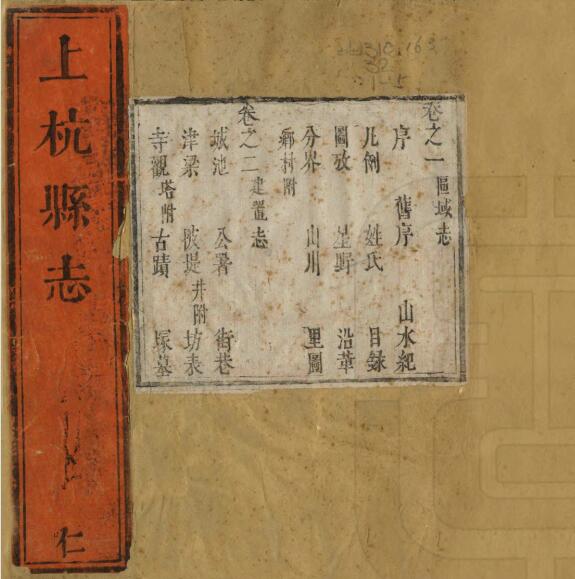 上杭縣志 仁
卷之一 區域志
序 舊序 山水紀
凡例 姓氏 目録
圖攷 星野 沿革
分界 山川 里圖
鄉村附
卷之二 建置志
城池 公署 街巷
津梁 陂堤井附 坊表
寺觀塔附 古蹟 塚墓
32
1-5